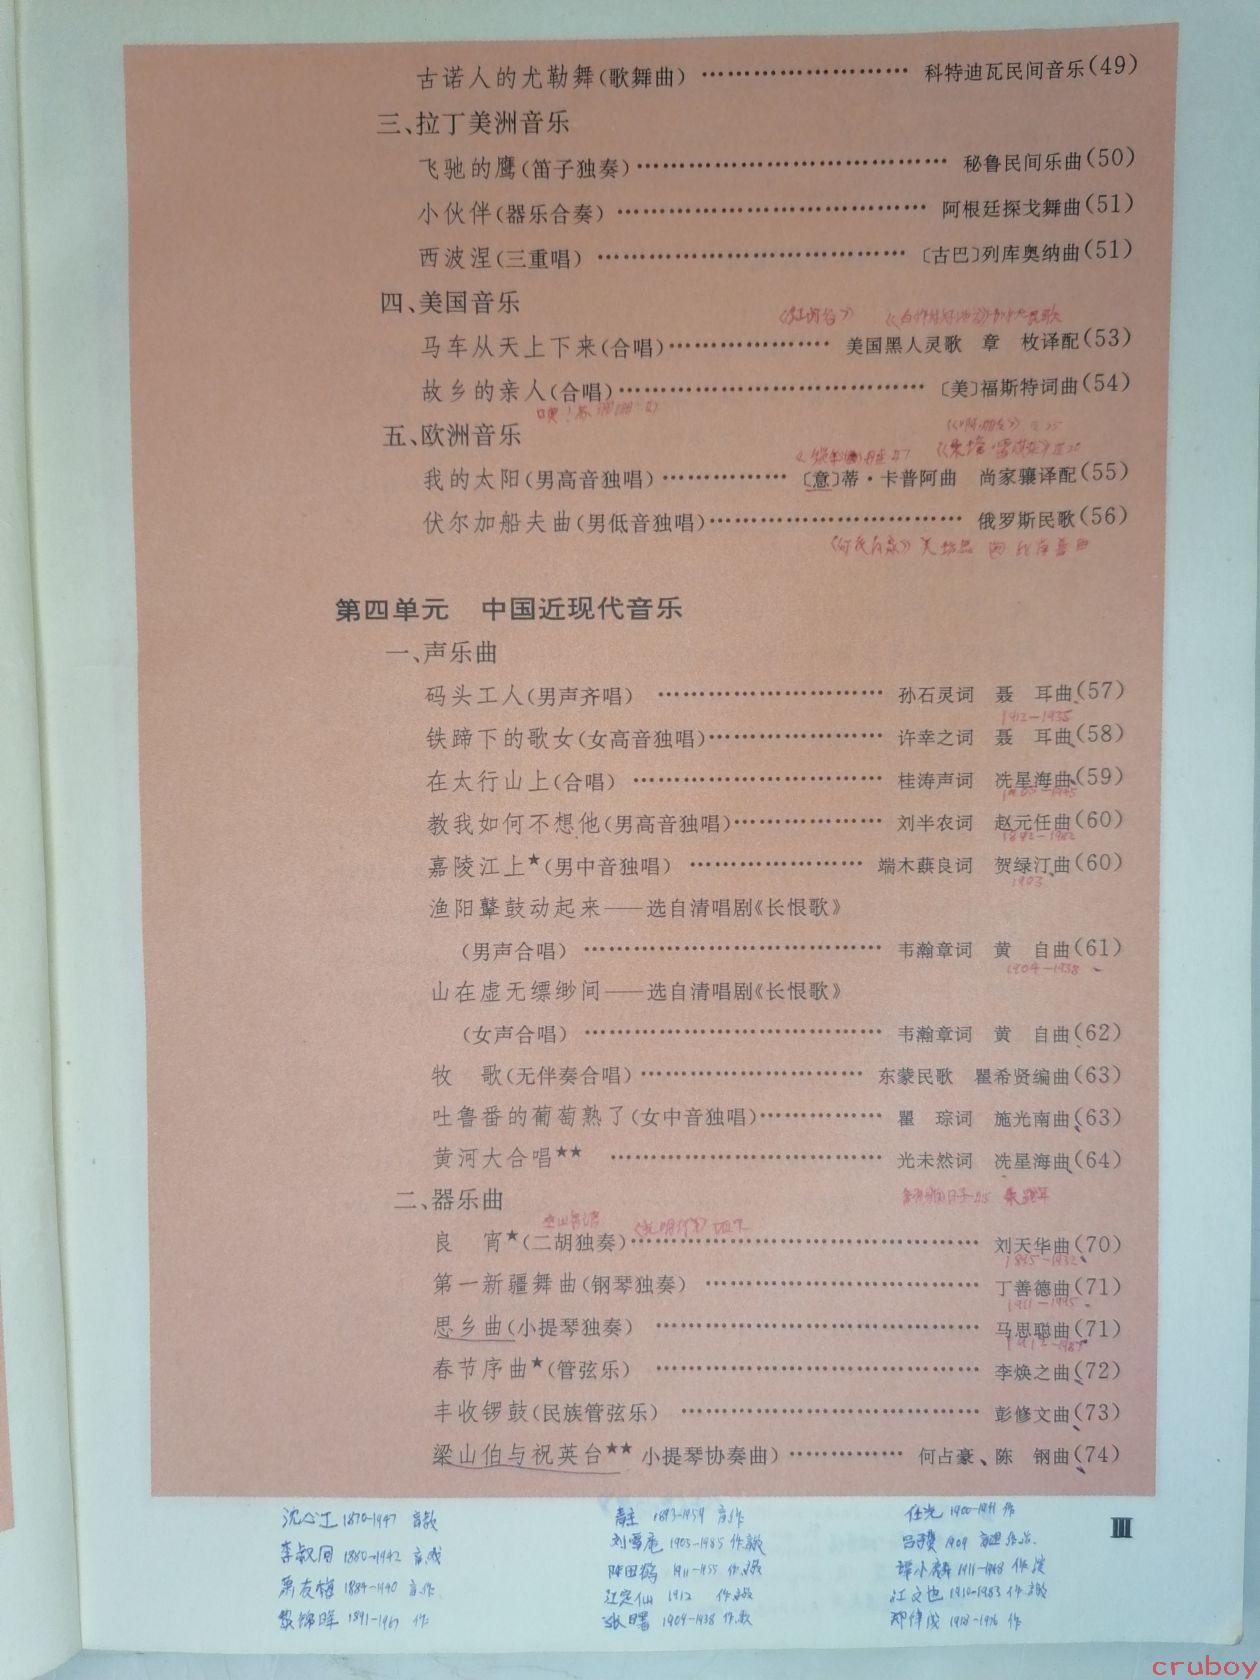 古诺人的尤勒舞(歌舞曲) ……………………… 科特迪瓦民间音乐(49)
三、拉丁美洲音乐
飞驰的鹰(笛子独奏)……………………………… 秘鲁民间乐曲(50)
小伙伴(器乐合奏) ……………………………… 阿根廷探戈舞曲(51)
西波涅(三重唱) ……………………………… 〔古巴〕列库奥纳曲(51)
四、美国音乐
《红河谷》
马车从天上下来(合唱)……………… 美国黑人灵歌 章 枚译配(53)
故乡的亲人(合唱)……………………………… 〔美〕福斯特词曲(54)
五、欧洲音乐
我的太阳(男高音独唱)…………… 〔意〕蒂·卡普阿曲 尚家骧译配(55)
伏尔加船夫曲(男低音独唱)……………………… 俄罗斯民歌(56)
第四单元 中国近现代音乐
一、声乐曲
码头工人(男声齐唱) ……………………… 孙石灵词 聂 耳曲(57)
1912—1935
铁蹄下的歌女(女高音独唱)………………… 许幸之词 聂 耳曲(58)
在太行山上(合唱) ………………………… 桂涛声词 冼星海曲(59)
1905—1945
教我如何不想他(男高音独唱)……………… 刘半农词 赵元任曲(60)
1892—1982
嘉陵江上★(男中音独唱) ………………… 端木蕻良词 贺绿汀曲(60)
1903
渔阳鼙鼓动起来——选自清唱剧《长恨歌》
(男声合唱) ……………………………… 韦瀚章词 黄 自曲(61)
1904—1938
山在虚无缥缈间——选自清唱剧《长恨歌》
(女声合唱) ……………………………… 韦瀚章词 黄 自曲(62)
牧 歌(无伴奏合唱)……………………… 东蒙民歌 瞿希贤编曲(63)
吐鲁番的葡萄熟了(女中音独唱)…………… 瞿 琮词 施光南曲(63)
黄河大合唱★★ …………………………… 光未然词 冼星海曲(64)
二、器乐曲
《光明行》
良 宵★(二胡独奏)…………………………………… 刘天华曲(70)
1895—1932
第一新疆舞曲(钢琴独奏) …………………………… 丁善德曲(71)
1911—1995
思乡曲(小提琴独奏) ………………………………… 马思聪曲(71)
1912—1987
春节序曲★(管弦乐) ………………………………… 李焕之曲(72)
丰收锣鼓(民族管弦乐) ……………………………… 彭修文曲(73)
梁山伯与祝英台★★ 小提琴协奏曲)…………… 何占豪、陈 钢曲(74)
沈心工 1870—1947 青主 1893—1959 任光 1900—1941 作
III
李叔同 1880—1942 刘雪庵 1905—1985 吕骥 1909
萧友梅 1884—1940 陈田鹤 1911—1955 谭小麟 1911—1948
江定仙 1912 江文也 1910—1983
黎锦晖 1891—1967 作 张曙 1909—1938 作歌 郑律成 1918—1976 作
cruboy